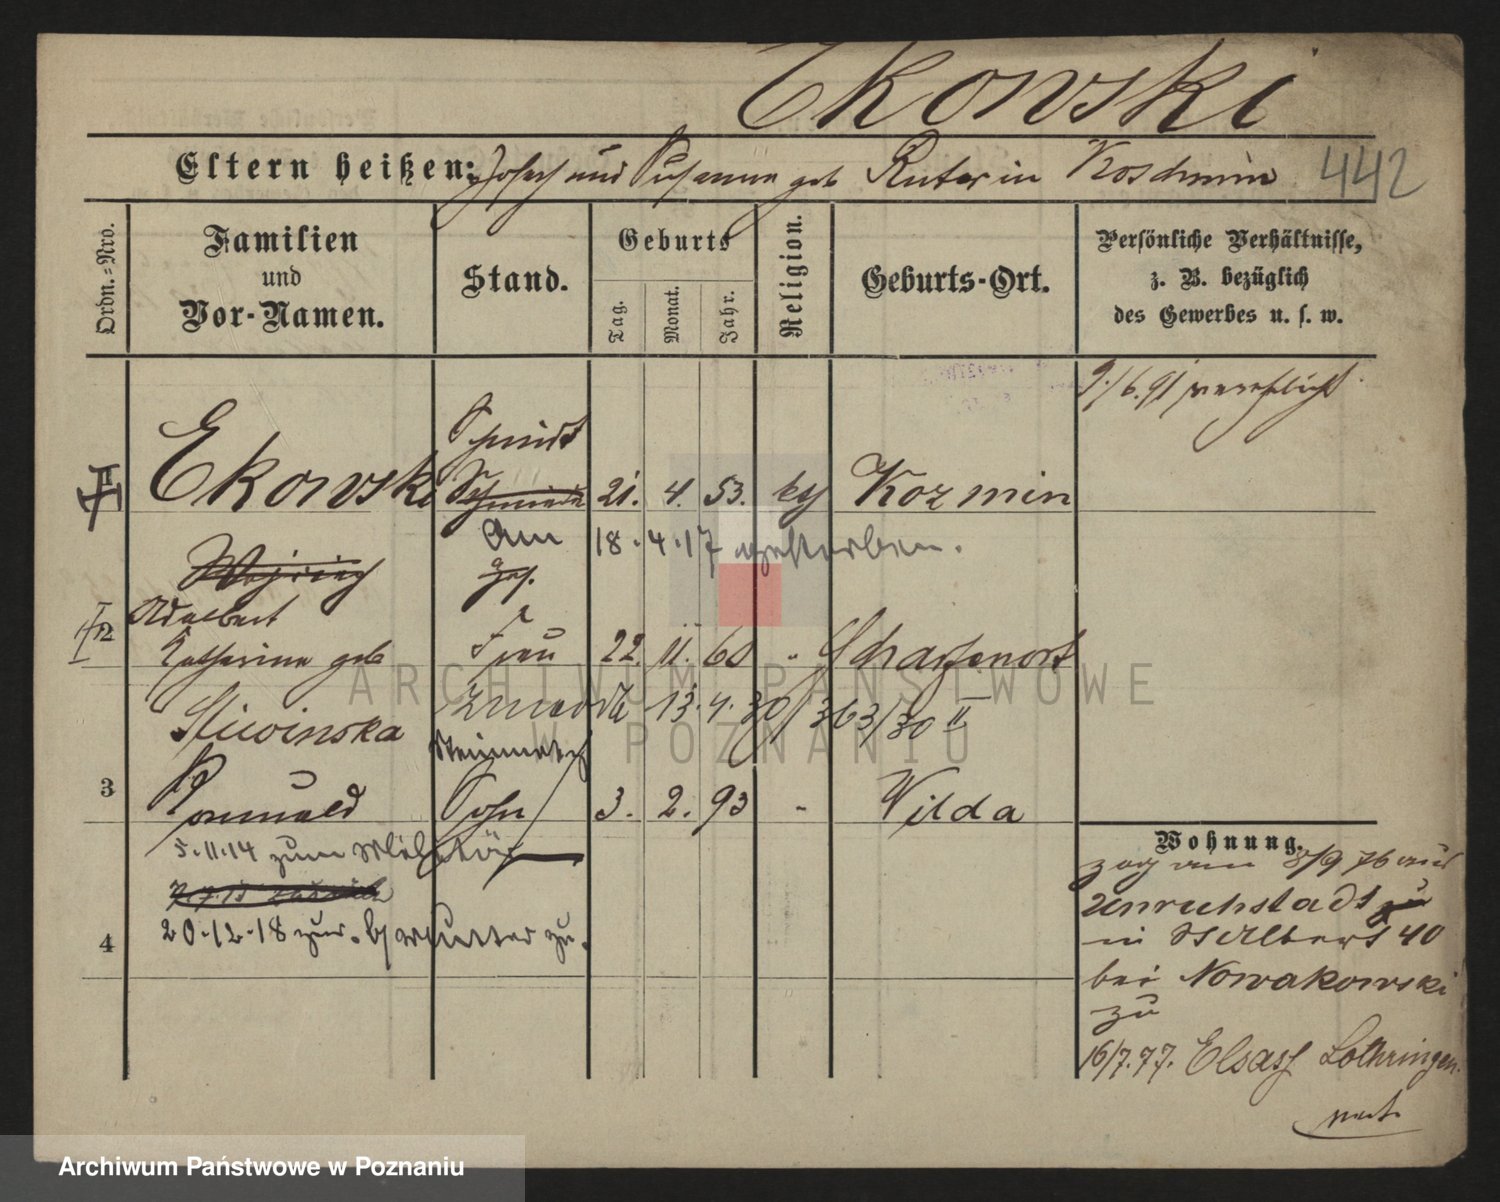 Ekowski
Eltern heißen: Joseph und Susanna geb Ruter in Koschmin 442
Ordn.=Nro.
Familien
und
Vor-Namen.
Stand.
Geburts
Tag.
Monat.
Jahr.
Religion.
Geburts-Ort.
Persönliche Verhältnisse,
z. B. bezüglich
des Gewerbes u. s. w.
9/6.91 verpflicht
Schmidt
Ekowski 21. 4. 53. Kozmin
Am 18.4.17 gestorben.
Adalbert
2 Katharina geb Frau 22. 11. 60 " Scharfenort
Sliwinska 13.4.30/363/30 II
3 Romuald Sohn 3. 2. 93 " Wilda
5.11.14 zum Militär
4 20.12.18 zur. b/Mutter zu.
Wohnung.
zog am 8/9 76 aus
Unruhstadt
in St Adalbert 40
bei Nowakowski
zu
16/7.77. Elsass Lothringen
ARCHIWUM PAŃSTWOWE
W POZNANIU
Archiwum Państwowe w Poznaniu